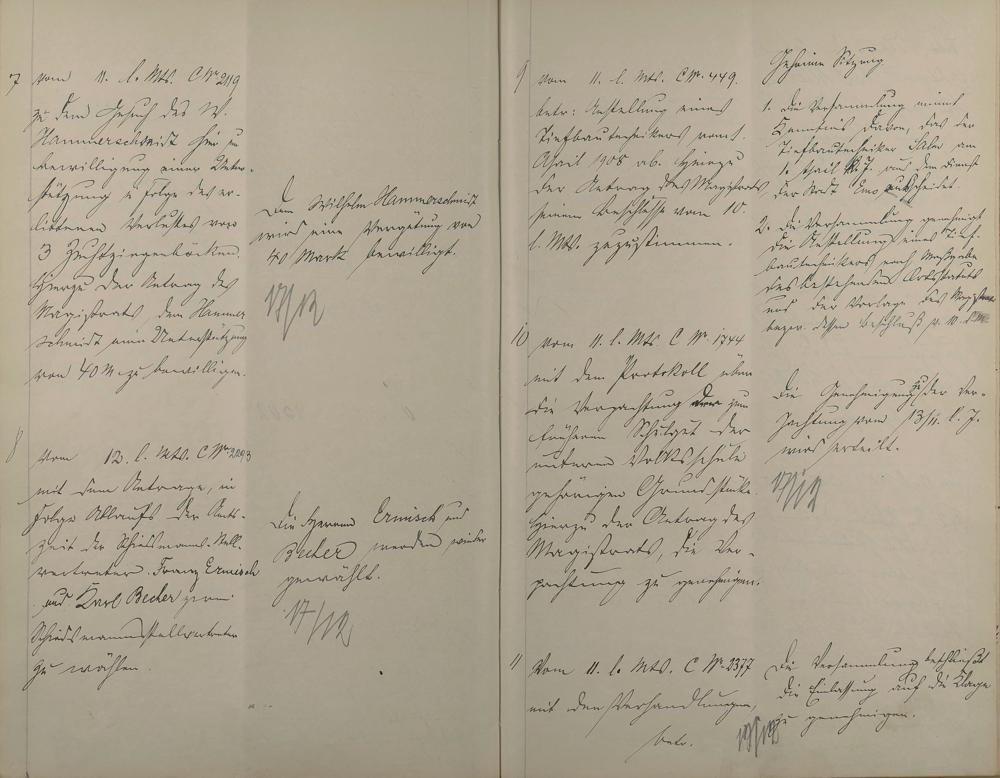 7 vom 11. l. Mts. C Nr. 2119
zu dem Gesuch des W.
Hammerschmidt hier um
Bewilligung einer Unter-
stützung zufolge des er-
littenen Verlustes von
3 Zuchtziegenböcken.
Hierzu der Antrag des
Magistrats, dem Hammer
schmidt eine Unterstützung
von 40 M zu bewilligen.
Dem Wilhelm Hammerschmidt
wird eine Vergütung von
40 Mark bewilligt.
17/12
8 Vom 12. l. Mts. C Nr. 2293
mit dem Antrage, in
Folge Ablaufs der Amts-
zeit der Schiedsmanns-Stell-
vertreter Franz Ermisch
und Karl Becher zwei
Schiedsmannsstellvertreter
zu wählen.
Die Herren Ermisch und
Becher werden wieder
gewählt.
17/12
9 vom 11. l. Mts. C Nr. 449.
betr: Anstellung eines
Tiefbautechnikers vom 1.
April 1908 ab. Hierzu
der Antrag des Magistrats
seinem Beschlusse vom 10.
l. Mts. zuzustimmen.
Geheime Sitzung
1. Die Versammlung nimmt
Kenntnis davon, das der
Tiefbautechniker am
1. April k. J. aus dem Dienst
der Stadt Ems ausscheidet.
2. Die Versammlung genehmigt
die Anstellung eines Tief-
bautechnikers nach Maßgabe
des bestehenden Ortsstatuts
und der Vorlage des Magistrats
bezw. dessen Beschluß v. 10. d. M.
10 vom 11. l. Mts C Nr. 1744
mit dem Protokoll über
die Verpachtung der zum
früheren Schulgut der
unteren Volksschule
gehörigen Grundstücke.
Hierzu der Antrag des
Magistrats, die Ver-
pachtung zu genehmigen.
Die Genehmigung zu der Ver-
pachtung vom 13/11. l. J.
wird erteilt.
17/12
11 Vom 11. l. Mts. C Nr. 2377
mit den Verhandlungen,
betr.
Die Versammlung beschließt
die Einlassung auf die Klage
zu genehmigen.
19/12